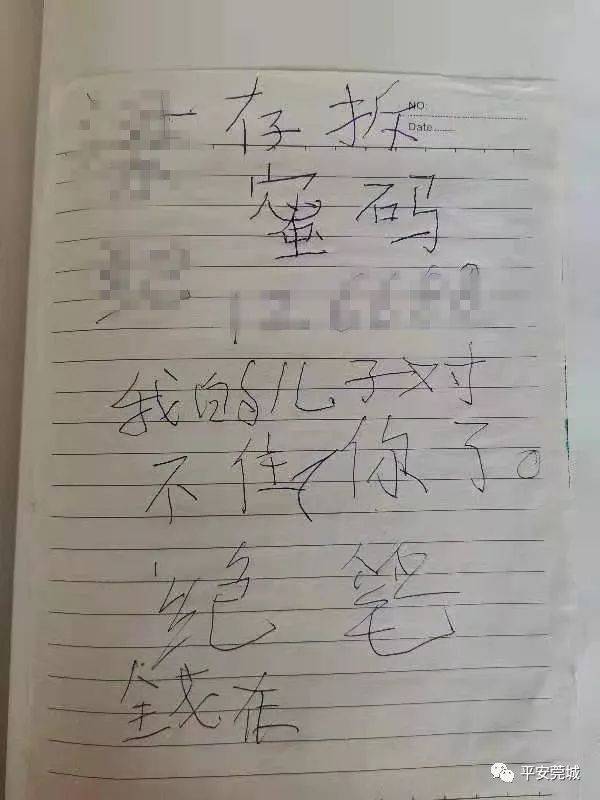 存折
NO.
Date
密码
我的儿子对
不住你了。
绝笔
錢在
平安莞城